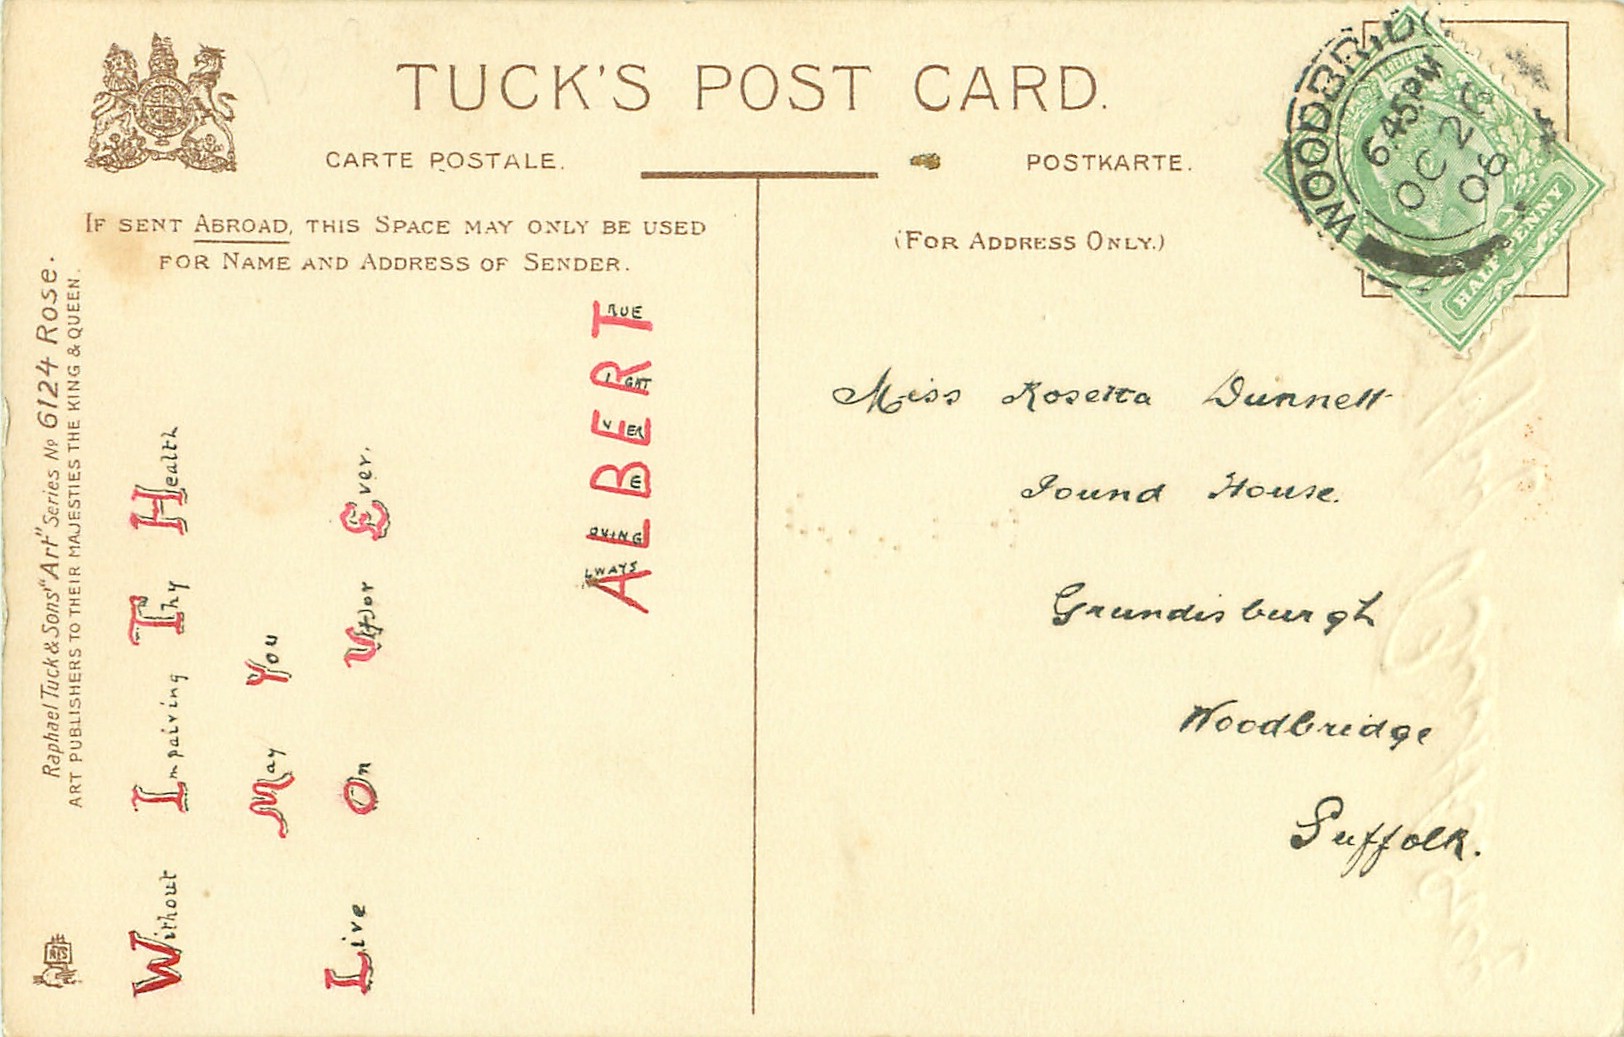 TUCK'S POST CARD.
CARTE POSTALE.
POSTKARTE.
IF SENT ABROAD, THIS SPACE MAY ONLY BE USED
FOR NAME AND ADDRESS OF SENDER.
(FOR ADDRESS ONLY.)
Raphael Tuck & Sons' "Art" Series No 6124 Rose.
ART PUBLISHERS TO THEIR MAJESTIES THE KING & QUEEN.
Without Impairing Thy Health
May You
Live On
Ever.
ALBERT
LWAYS
OVING
E
VER
IGHT
RUE
WOODBRIDG
6.45PM
OC 26
06
HALF PENNY
Miss Rosetta Dunnett
Pound House.
Grundisburgh
Woodbridge
Suffolk.